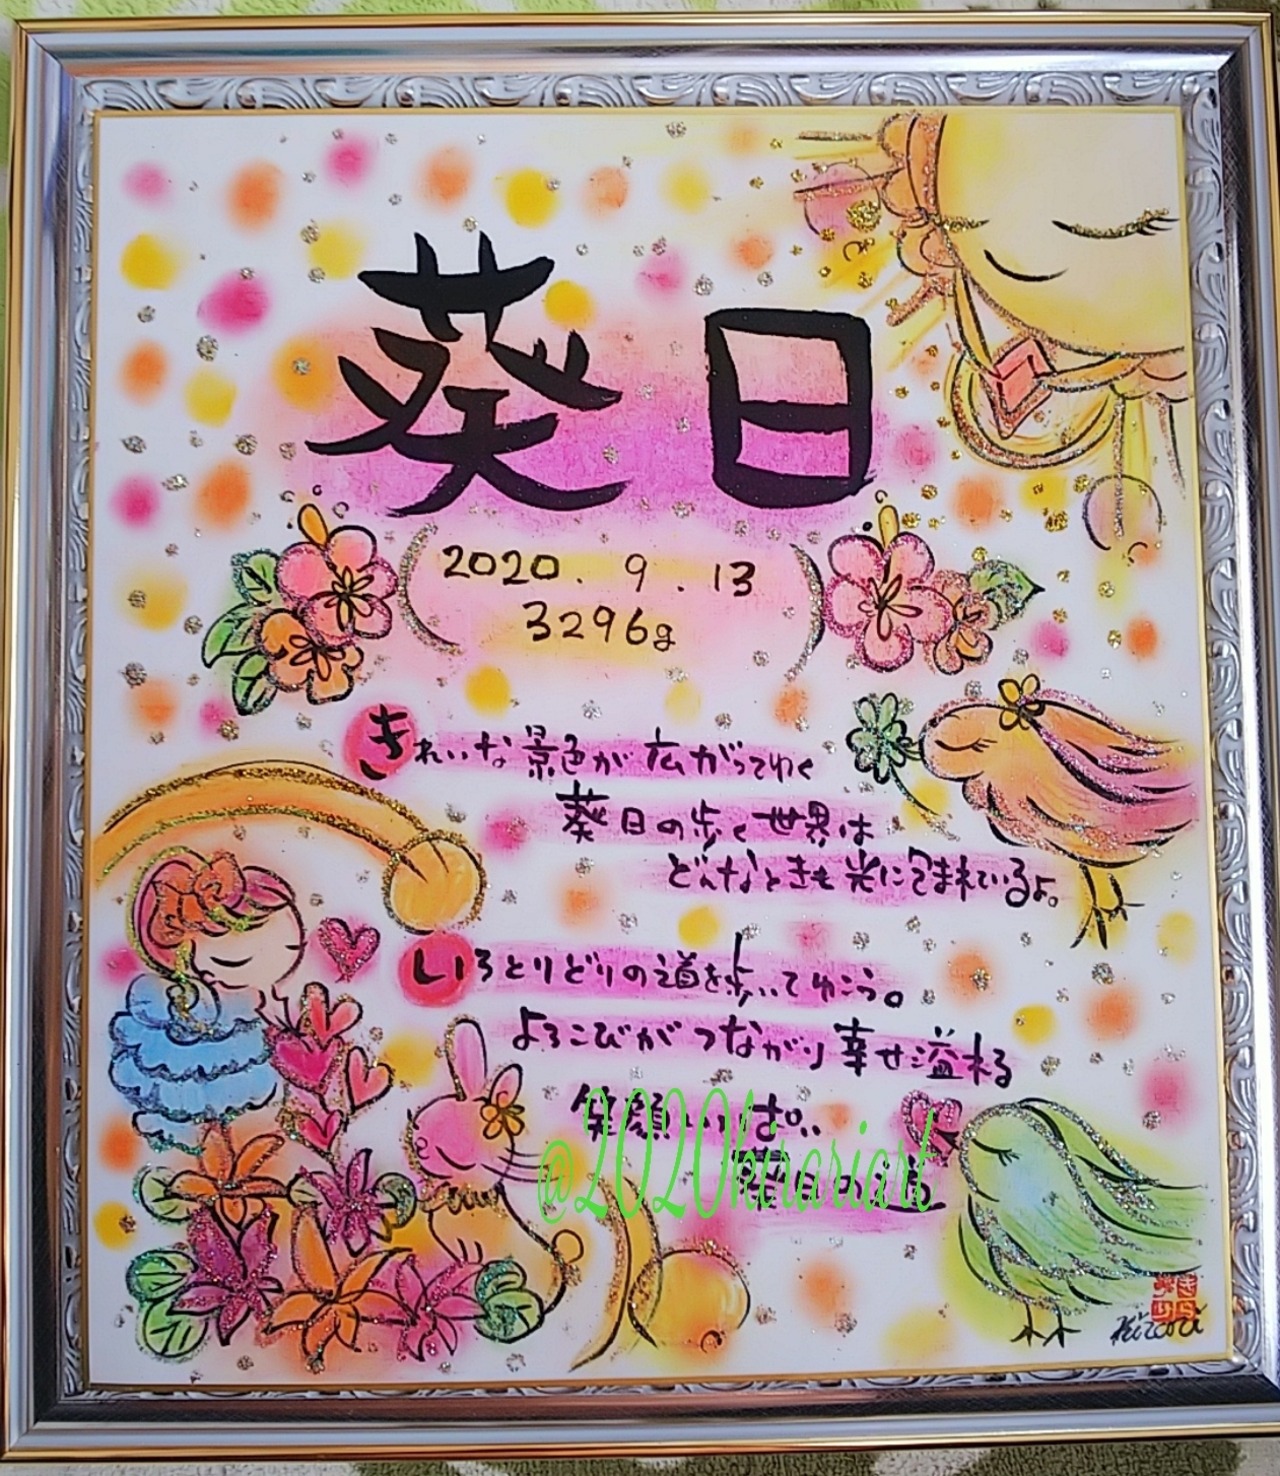 葵日
2020.9.13
3296g
きれいな景色が広がってゆく
葵日の歩く世界は
どんなときも光に包まれているよ。
いろとりどりの道を歩いてゆこう。
よろこびがつながり幸せ溢れる
笑顔いっぱい
葵日の道
@2020kirariart
きらり
Kirari